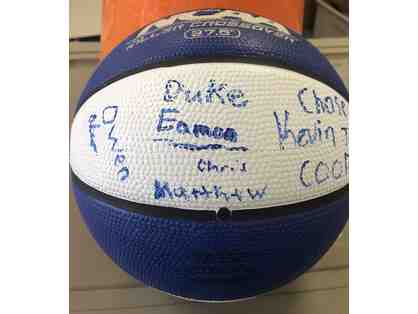 KILLER CROSSOVER
27.5"
Duke
Eamon
Chris
Matthew
Chase
Kevin T
COOP